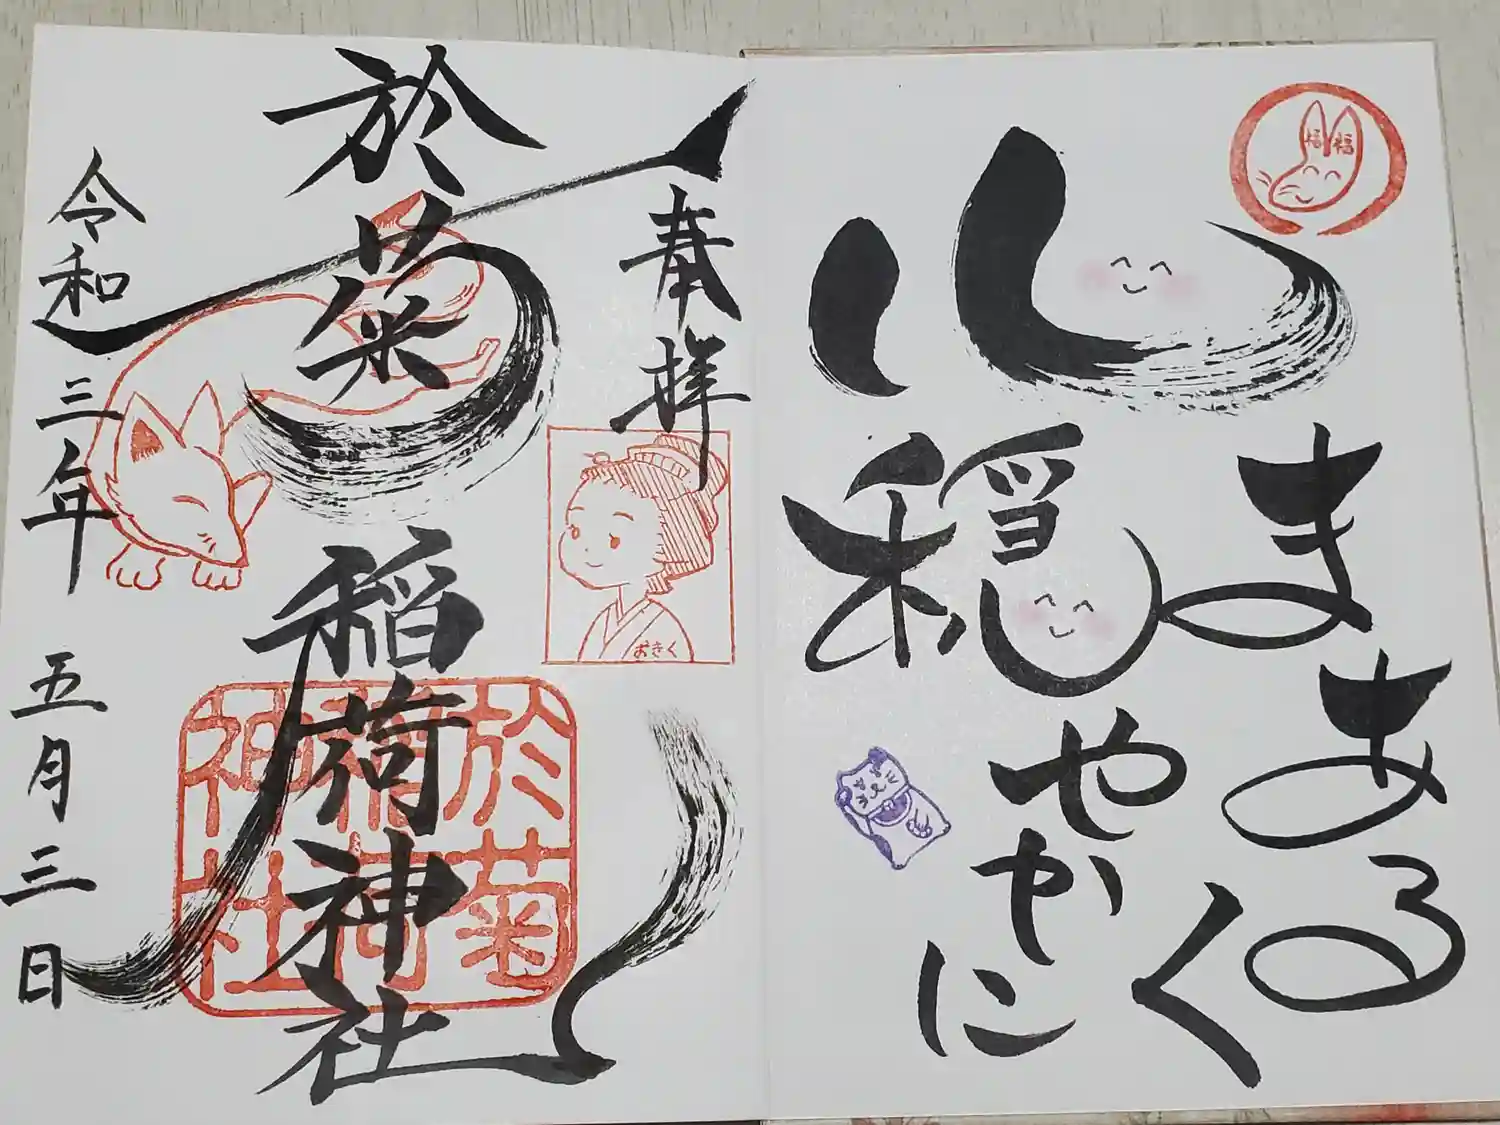 福 福
まあるく
心
穏やかに
奉拝
おきく
於菊稲荷神社
於菊
稲荷
神社
令和三年 五月三日